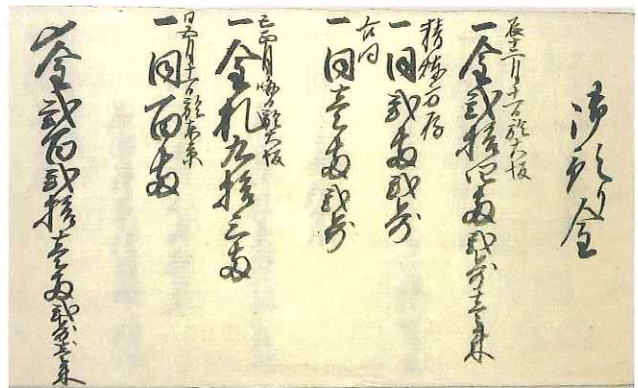 御預り金
辰十二月十一日於大坂
一金弐拾四両弐歩壱朱
精煉方
一同弐両弐歩
右同
一同壱両弐歩
巳正月晦日於大坂
一金札九拾三両
月十一日於東京
一同百両
〆金弐百弐拾壱両弐歩壱朱